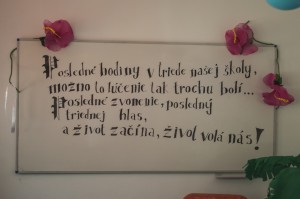 Posledné hodiny v triede našej školy,
možno to lúčenie tak trochu bolí...
Posledné zvonenie, posledný
triednej hlas,
a život začína, život volá nás!